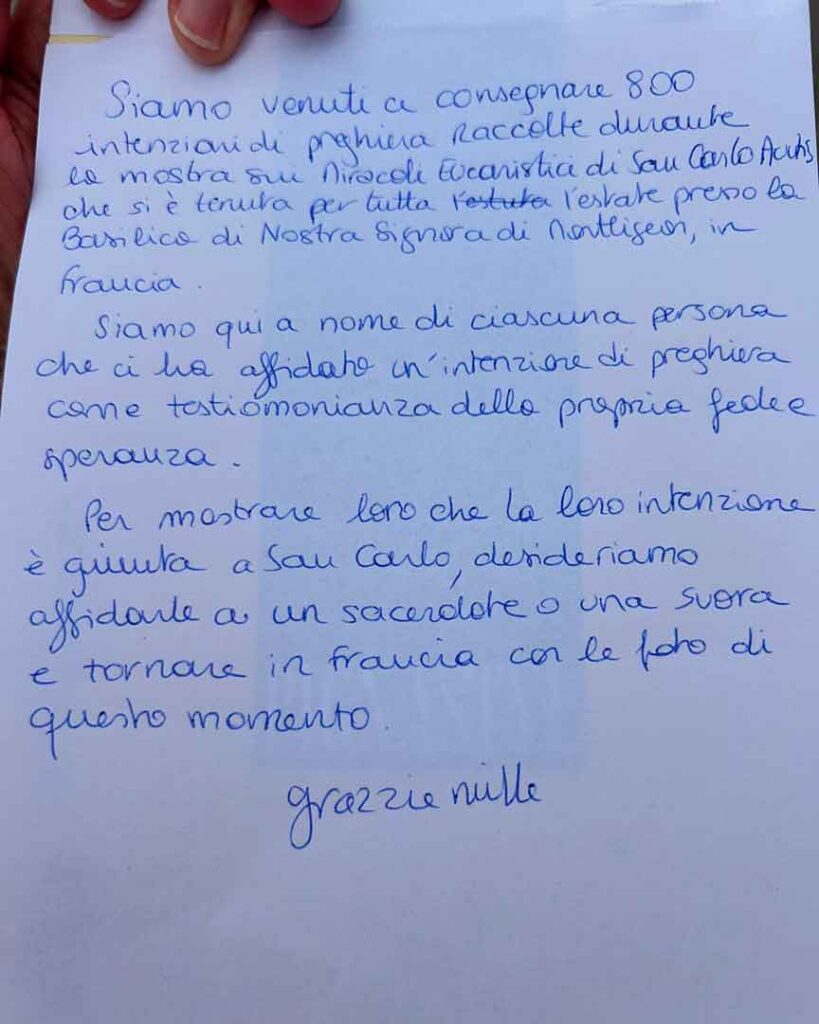 Siamo venuti a consegnare 800
intenzioni di preghiera Raccolte durante
la mostra sui Miracoli Eucaristici di San Carlo Acutis
che si è tenuta per tutta l'estuta l'estate presso la
Basilica di Nostra Signora di Montligeon, in
francia.
Siamo qui a nome di ciascuna persona
che ci ha affidato un'intenzione di preghiera
come testiomonianza della propria fede e
speranza.
Per mostrare loro che la loro intenzione
è giunta a San Carlo, desideriamo
affidarle a un sacerdote o una suora
e tornare in francia con le foto di
questo momento.
grazzie mille